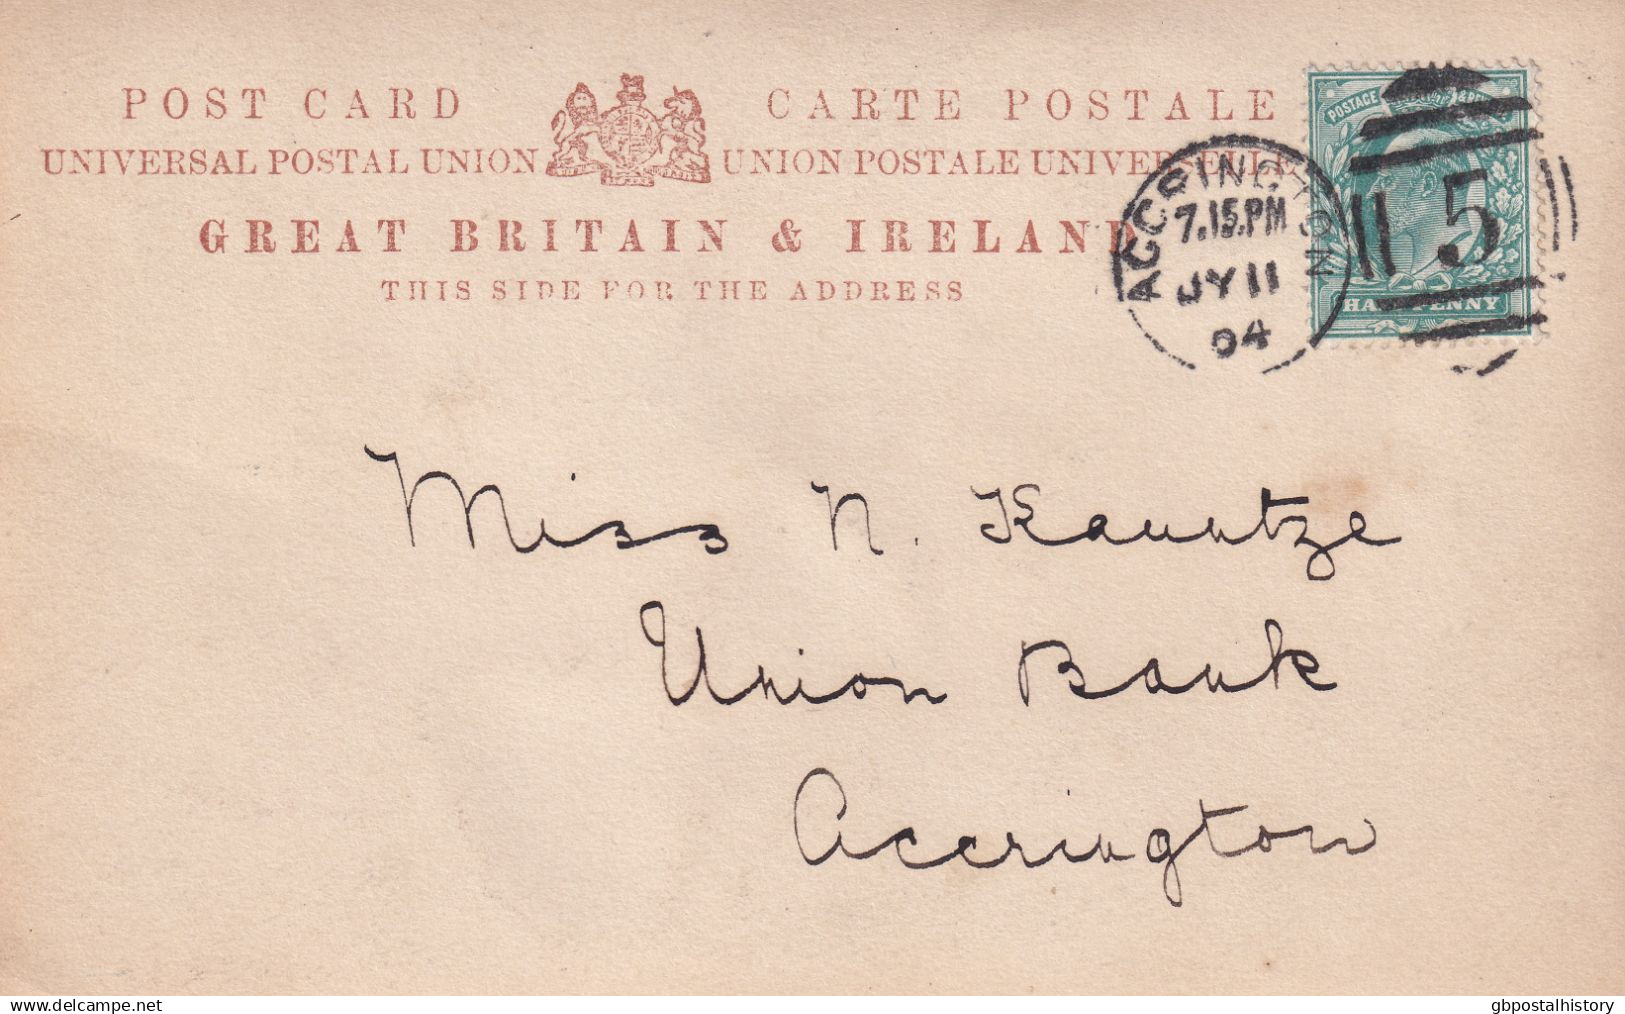 POST CARD CARTE POSTALE
UNIVERSAL POSTAL UNION UNION POSTALE UNIVERSELLE
GREAT BRITAIN & IRELAND
THIS SIDE FOR THE ADDRESS
POSTAGE
HALFPENNY
ACCRINGTON
7.15.PM
JY 11
04
5
Miss N. Kauntze
Union Bank
Accrington
delcampe.net
gbpostalhistory